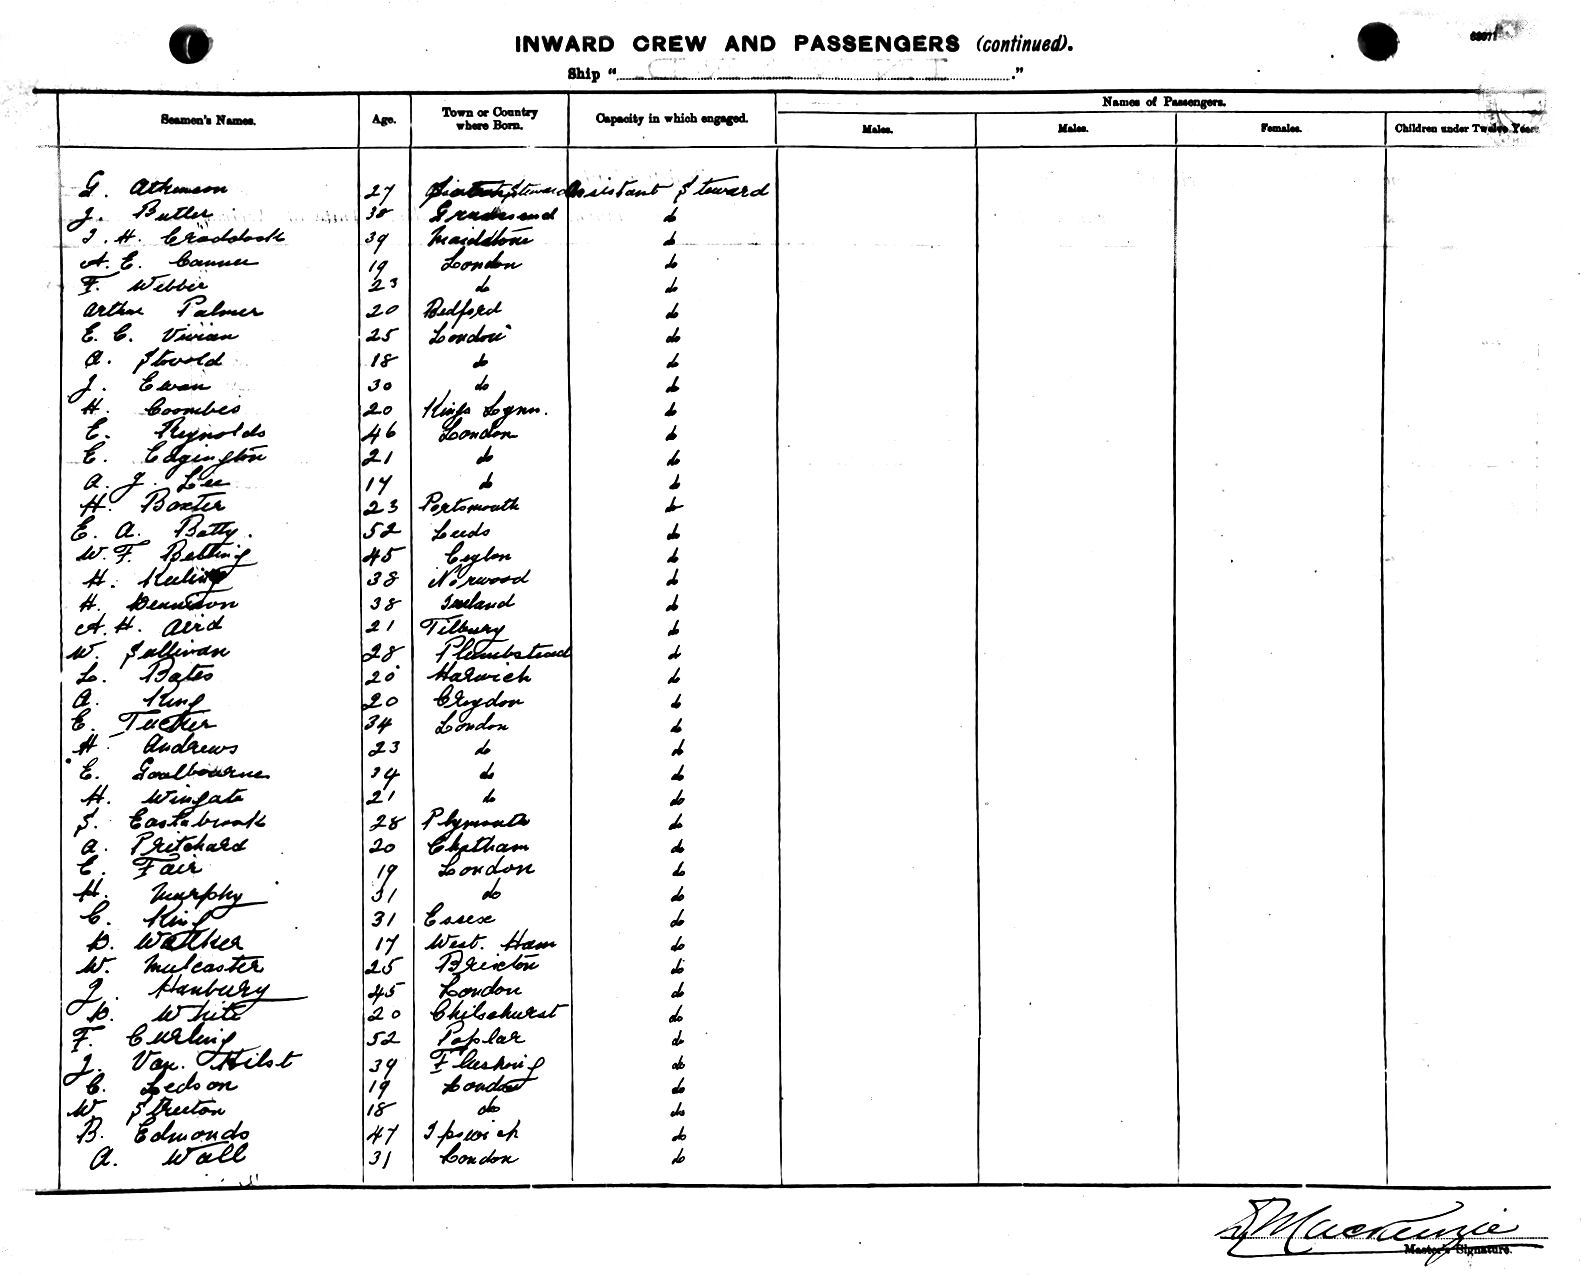 INWARD CREW AND PASSENGERS (continued).
Ship "                    ."
Seamen's Names. Age. Town or Country where Born. Capacity in which engaged. Names of Passengers.
Males. Males. Females. Children under Twelve Years
G. Atkinson 27 Assistant Steward
J. Butler 30 Gravesend do
J. H. Craddock 39 Maidstone do
A. E. Canner 19 London do
F. Webber 23 do do
Arthur Palmer 20 Bedford do
E. C. Vivian 25 London do
A. Stovold 18 do do
J. Ewan 30 do do
H. Coombes 20 Kings Lynn. do
E. Reynolds 46 London do
E. Edgington 21 do do
A. J. Lee 17 do do
H. Baxter 23 Portsmouth do
E. A. Batty. 52 Leeds do
W. F. Belling 45 Ceylon do
H. Keeling 38 Norwood do
H. Dennison 38 Ireland do
A. H. Aird 21 Tilbury do
W. Sullivan 28 Plumbstead do
L. Bates 20 Harwich do
A. King 20 Croydon do
E. Tucker 34 London do
H. Andrews 23 do do
E. Goulbourne 34 do do
H. Wingate 21 do do
S. Eastabrook 28 Plymouth do
A. Pritchard 20 Chatham do
E. Fair 19 London do
H. Murphy 31 do do
C. King 31 Essex do
D. Walker 17 West. Ham do
W. Mulcaster 25 Brixton do
J. Hanbury 45 London do
D. White 20 Chilsehurst do
F. Curling 52 Poplar do
J. Van. Hilst 39 Flushing do
C. Ledson 19 London do
W. Streeton 18 do do
B. Edmonds 47 Ipswich do
A. Wall 31 London do
Mackenzie
Master's Signature.